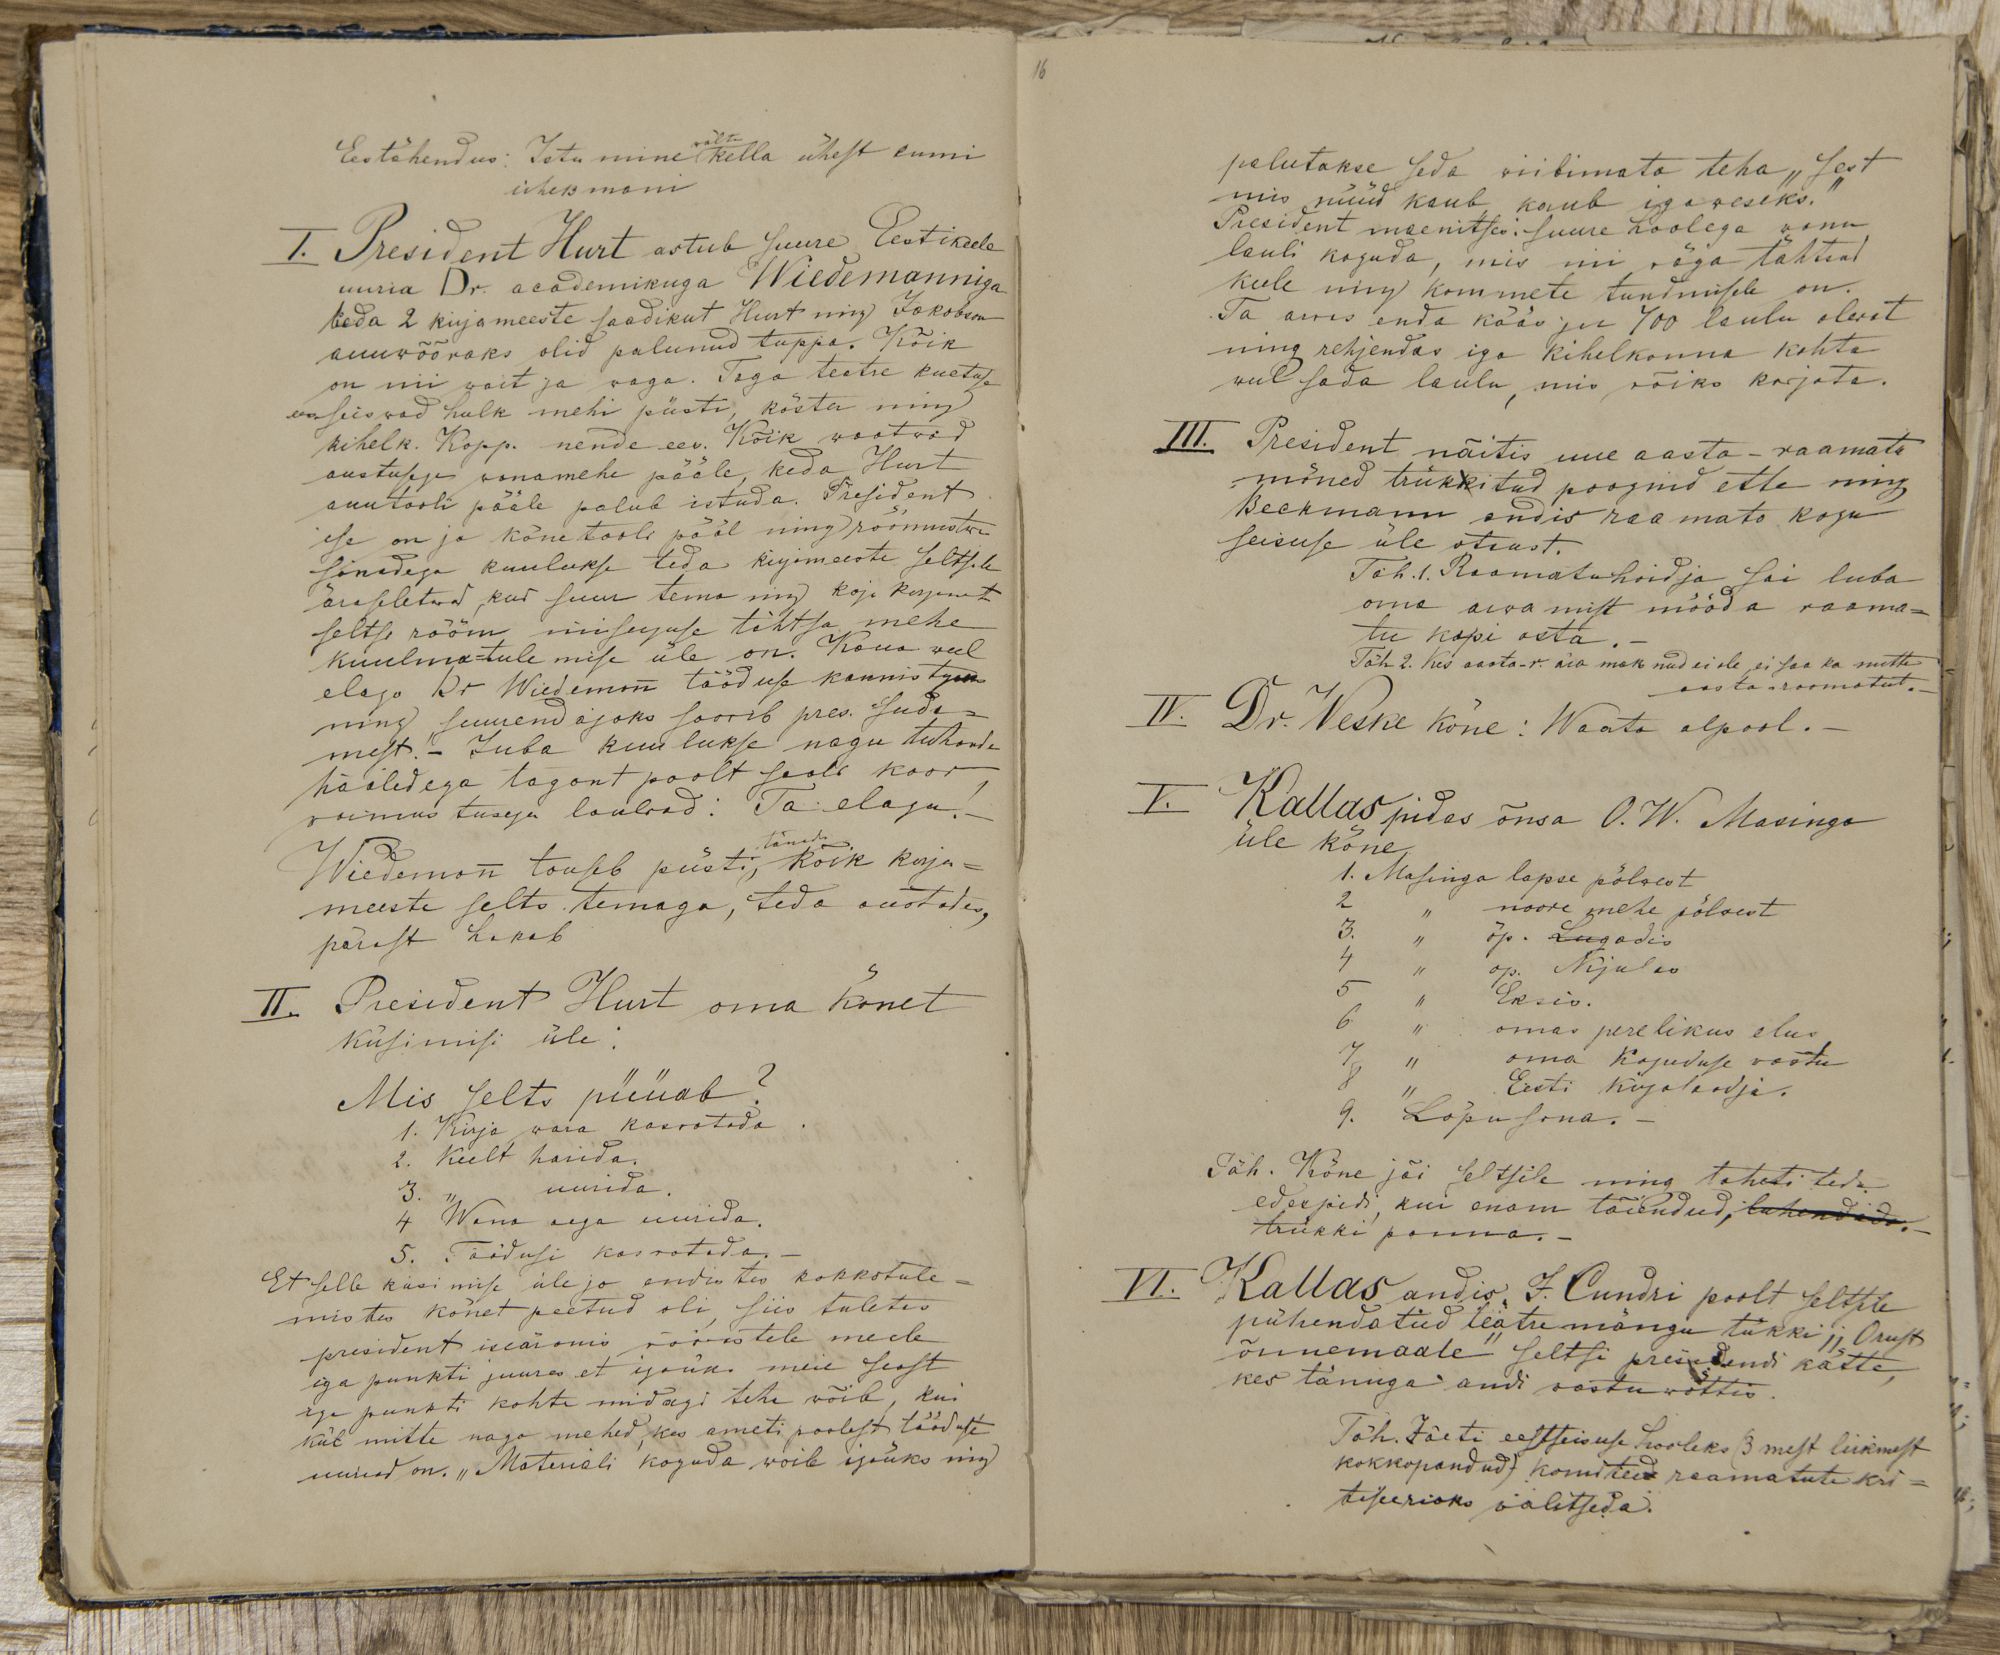 Eestähendus: Istumine wältas kella ühest
I. President Hurt astub suure Eestikeele
uuria Dr. academikuga Wiedemanniga
keda 2 kirjameeste saadikut Hurt ning Jakobson
auuwõõraks olid palunud tuppa. Kõik
on nii wait ja waga. Taga teatre kaetuse
een seiswad hulk mehi püsti, köster ning
kihelk. Kopp. nende ees. Kõik waatwad
austusega wanamehe pääle, keda Hurt
auutooli pääle palub istuda. President
ise on ja kõnetooli pääl ning rõõmustwa
sõnadega kuulukse teda kirjameeste seltsile
äraseletawad, kui suur tema ning koja kirjamest
seltsi rõõm niisuguse tähtsa mehe
kuulma-tulemise üle on. Kaua weel
elago Dr Wiedemann tööduse kaunistajaks
ning suurendajaks soowib pres. süda-
mest. - Juba kuulukse nagu tuhande
häältega tagant poolt saali koor
waimustusega laulwad: Ta elagu! -
Wiedemann touseb püsti, tänades kõik kirja-
meeste selts temaga, teda auustades,
pärast hakab
II. President Hurt oma kõnet
küsimisi üle:
Mis selts püüab?
1. Kirja wara kaswatada.
2. Keelt harida.
3. " uurida.
4 Wana aega uurida.
5. Töödusi kaswatada. -
Et selle küsimise üle jo endistes kokkotule-
mistes kõnet peetud oli, siis tuletas
president iseäranis wööristele meele
iga punkti juures et igaüks meie seast
iga punkti kohta midagi teha wõib, kui
küll mitte nago mehed, kes ameti poolest tööduse
uuriad on. "Materiali koguda wõib igaüks ning
16
palutakse seda wiibimata teha, "sest
mis nüüd kaub, kaub igaweseks."
President maenitses: suure hoolega wanu
lauli koguda, mis nii wäga tähtsad
keele ning kommete tundmisele on.
Ta arwas enda kääs ju 700 laulu olewat
ning rehjendas iga kihelkonna kohta
weel sada laulu, mis wõiks korjata.
III. President näitis uue aasta-raamatu
mõned trükkitud poognid ette ning
Beekmann andis raamato kogu
seisuse üle otsust.
Täh. 1. Raamatuhoidja sai luba
oma arwamist mööda raama-
tu kapi osta. -
Täh 2. Kes aasta-r. ära maksnud ei ole, ei saa ka mitte
aasta-raamatut. -
IV. Dr. Veske kõne: Waata alpool. -
V. Kallas pidas õnsa O. W. Masinga
üle kõne
1. Masinga lapse põlwest
2 " noore mehe põlwest
3. " õp. Luganus
4 " õp. Nijulas
5 " Eksis.
6 " omas perelikus elus
7 " oma koguduse wastu
8 " Eesti kirjalaadja.
9. Lõpusõna. -
Täh. Kõne jäi seltsile ning taheti teda
edespidi, kui enam täiendud, lühendada. -
trükki panna. -
VI. Kallas andis J. Cundri poolt seltsile
pühendatud teatre mängu tükki "Orust
õnnemaale" seltsi presidendi kätte,
kes tänuga andi wastu wõttis.
Täh. Jäeti eestseisuse hooleks (3 mest liikmest
kokkopandud) komiteed raamatute kri-
tiseerioks walitseda.